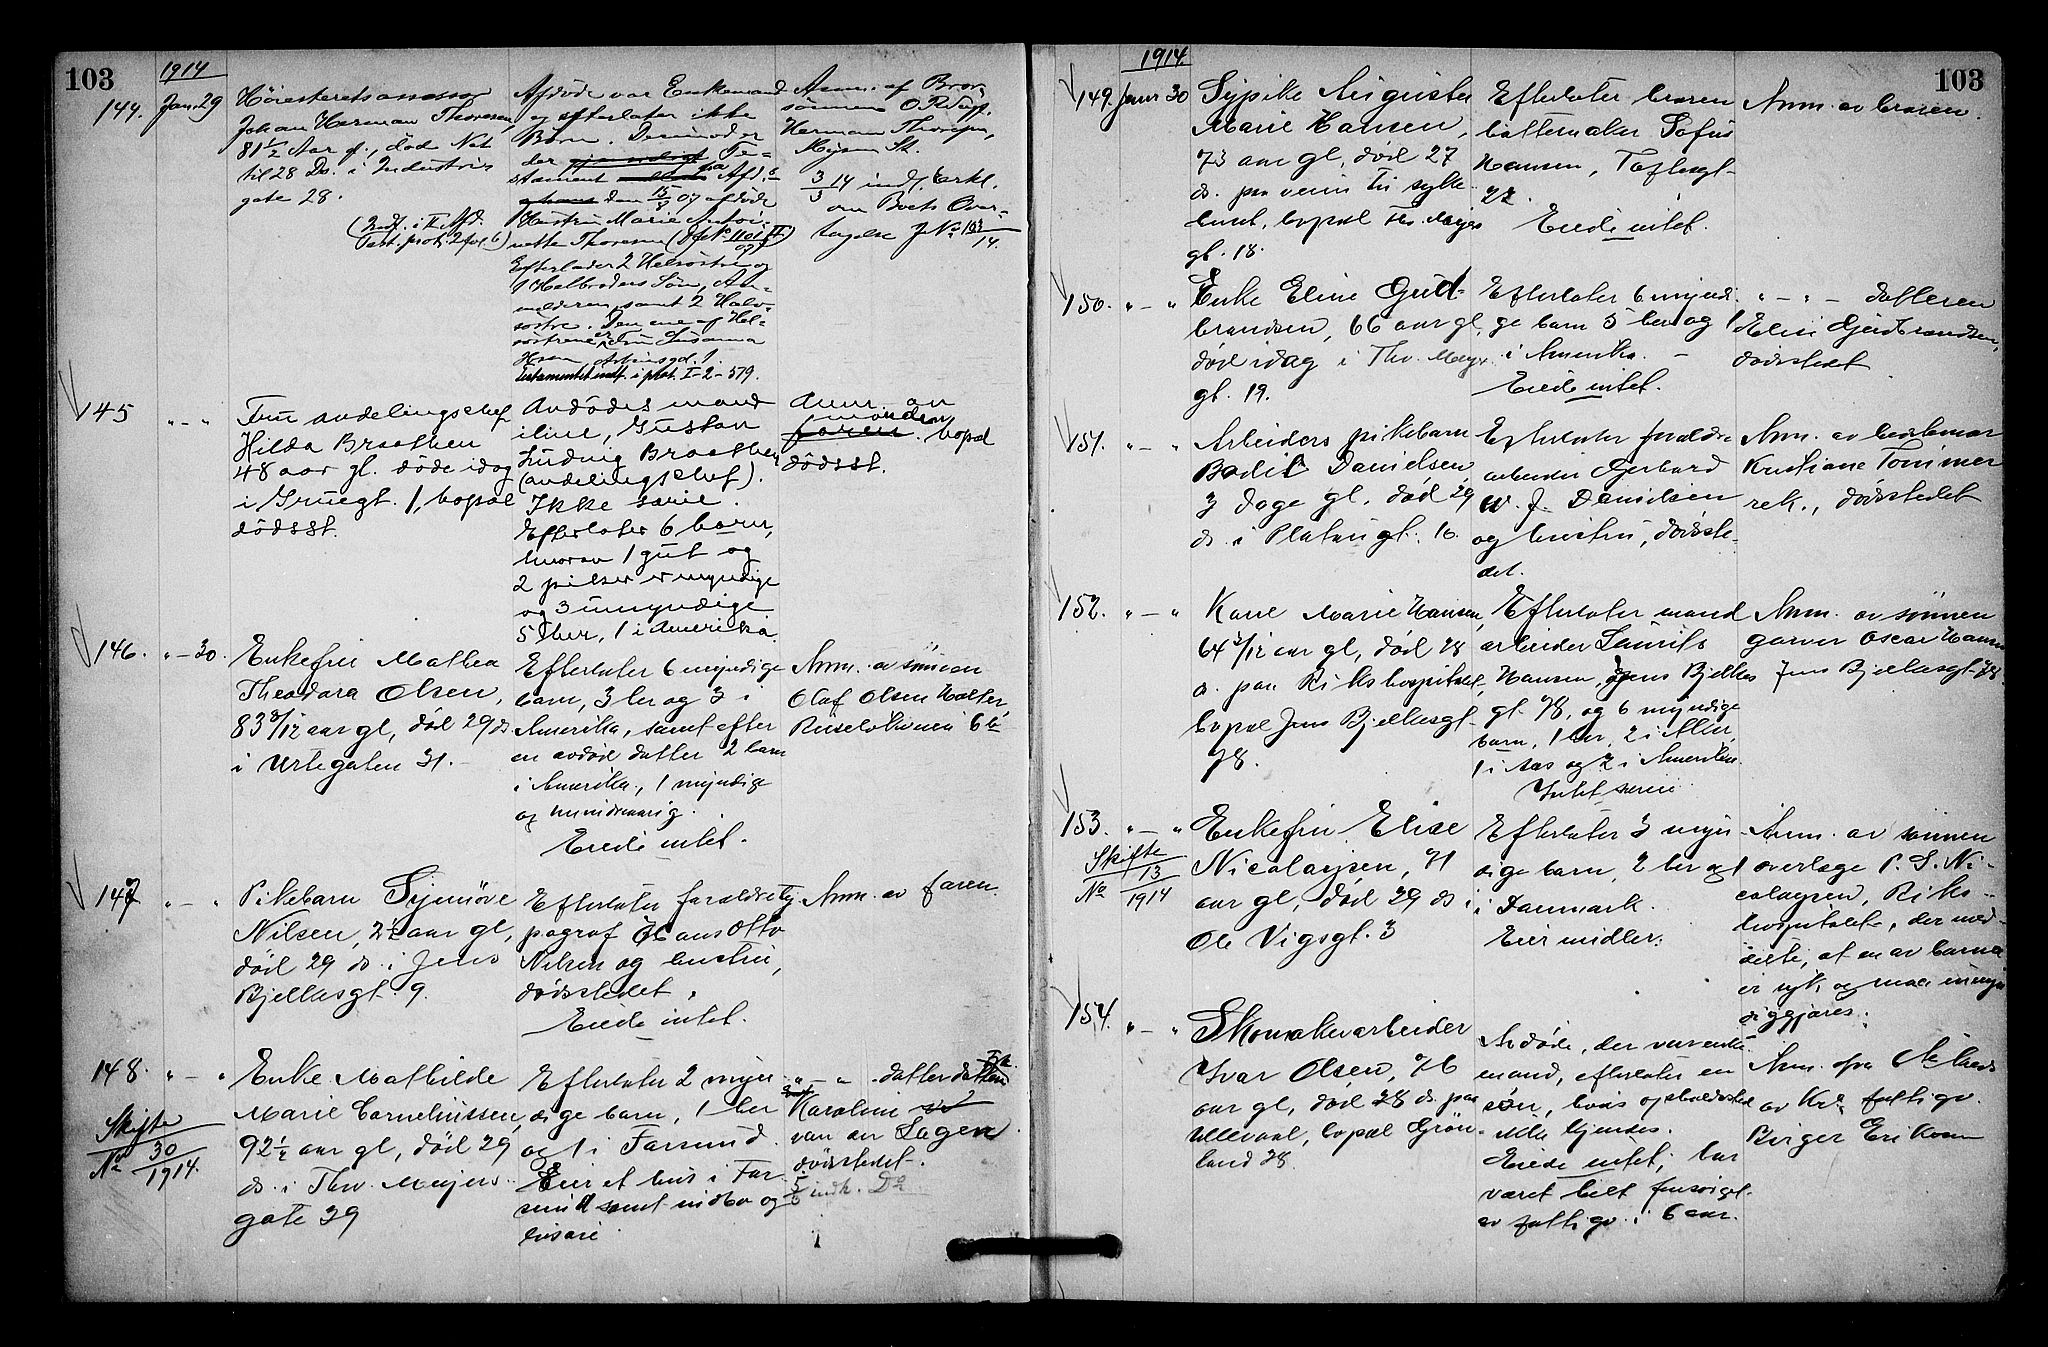 103
1914
144. Jan. 29
Høiesteretsassessor
Johan Herman Thoresen,
81½ Aar gl., døde Nat
til 28 Ds. i Industri
gate 28.
(Indf. i II Afd.
Test. prot. 2 fol. 6)
Afdøde var Enkemand
og efterlater ikke
Børn. Derimod er
der Te-
stament fra Afd.s
den 15/8 07 afdøde
Hustru Marie Antoi-
nette Thoresen
Efterlader 2 Helsøstre og
1 Helbroders Søn, An-
melderen, samt 2 Halv-
søstre. Den ene af Hel-
søstrene er Fru Susanna
Testamentet indf. i prot. I-2-579.
Anm. af Bror-
sønnen O.R.Sagf.
Herman Thoresen,
Mysen St.
3/3 14 indl. Erkl.
om Boets Over-
tagelse J No 193/14.
145 " - "
Fru avdelingschef
Hilda Braathen
48 aar gl. døde idag
i Gruegt. 1, bopæl
dødsst.
Avdødes mand
Gustav
Ludvig Braathen
(avdelingschef).
Ikke særeie.
Efterlater 6 barn,
hvorav 1 gut og
2 piker er myndige
og 3 umyndige
5 her, 1 i Amerika.
Anm. av
manden
faren. bopæl
dødsst.
146. " - 30.
Enkefru Mathea
Theodora Olsen,
83 8/12 aar gl, død 29 ds
i Urtegaten 31.
Efterlater 6 myndige
barn, 3 her og 3 i
Amerika, samt efter
en avdød datter 2 barn
i Amerika, 1 myndig
og 1 mindreaarig.
Eiede intet.
Anm. av sønnen
Olaf Olsen Holter,
Ruseløkveien 6
147 " - "
Pikebarn Synnøve
Nilsen, 2½ aar gl,
død 29 ds. i Jens
Bjelkesgt. 9.
Efterlater forældre ty-
pograf Hans Otto
Nilsen og hustru,
dødsstedet.
Eiede intet.
Anm. av faren
148. " - "
Skifte
No 30/1914.
Enke Mathilde
Marie Corneliussen,
92½ aar gl, død 29
ds. i Thv. Meyers
gate 39
Efterlater 2 myn-
dige barn, 1 her
og 1 i Farsund.
Eier et hus i Far-
sund samt indbo og
løsøre
" - " datterdatter
Karoline
van der Lagen
dødsstedet.
5/6 indk. Do
1914.
103
149. Januar 30
Sypike Augusta
Marie Hansen,
73 aar gl, død 27
ds. paa veien til syke-
huset, bopæl Thv. Meyers
gt. 18.
Efterlater broren
hattemaker Sofus
Hansen, Toftesgt.
22.
Eiede intet.
Anm. av broren.
150. " - "
Enke Eline Gud-
brandsen, 66 aar gl,
død idag i Thv. Meyers
gt. 19.
Efterlater 6 myndi-
ge barn 5 her og 1
i Amerika.
Eiede intet.
" - " - datteren
Elise Gudbrandsen,
dødsstedet
151. " - "
Arbeiders pikebarn
Bodil Danielsen
3 dage gl, død 29
ds. i Platousgt. 16.
Efterlater forældre
arbeider Gerhard
W. J. Danielsen
og hustru, dødsste-
det.
Anm. av bestemor
Kristiane Tommer
rek., dødsstedet
152. " - "
Kone Marie Hansen,
64 3/12 aar gl, død 28
ds. paa Rikshospitalet,
bopæl Jens Bjelkesgt.
78.
Efterlater mand
arbeider Laurits
Hansen, Jens Bjelkes
gt. 78, og 6 myndige
barn, 1 her, 2 i Aker,
1 i Aas og 2 i Amerika.
Intet særeie
Anm. av sønnen
garver Oscar Hansen
Jens Bjelkesgt. 78.
153. " - "
Skifte
No 13/1914
Enkefru Elise
Nicolaysen, 71
aar gl, død 29 ds i
Ole Vigsgt. 3
Efterlater 3 myn-
dige barn, 2 her og 1
i Danmark.
Eier midler.
Anm. av sønnen
overlæge P. S. Ni-
colaysen, Riks-
hospitalet, der med-
delte, at en av barna
er syk, og maa umyn-
diggjøres.
154. " - "
Skomakerarbeider
Ivar Olsen, 76
aar gl, død 28 ds. paa
Ullevaal, bopæl Grøn-
land 28.
Avdøde, der var enke-
mand, efterlater en
søn, hvis opholdssted
ikke kjendes.
Eiede intet, har
været helt forsørget
av fattigv. i 6 aar.
Anm. fra
av Kra fattigv.
Birger Eriksen